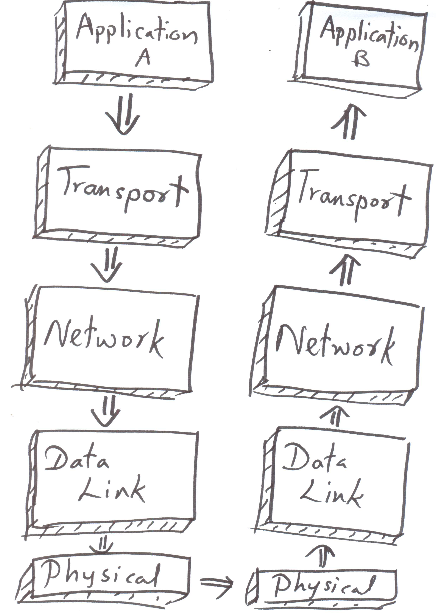 Application
A
Transport
Network
Data
Link
Physical
Application
B
Transport
Network
Data
Link
Physical